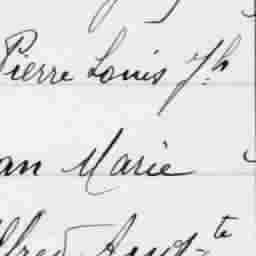 Pierre Louis Jh
an Marie
lfred Augte